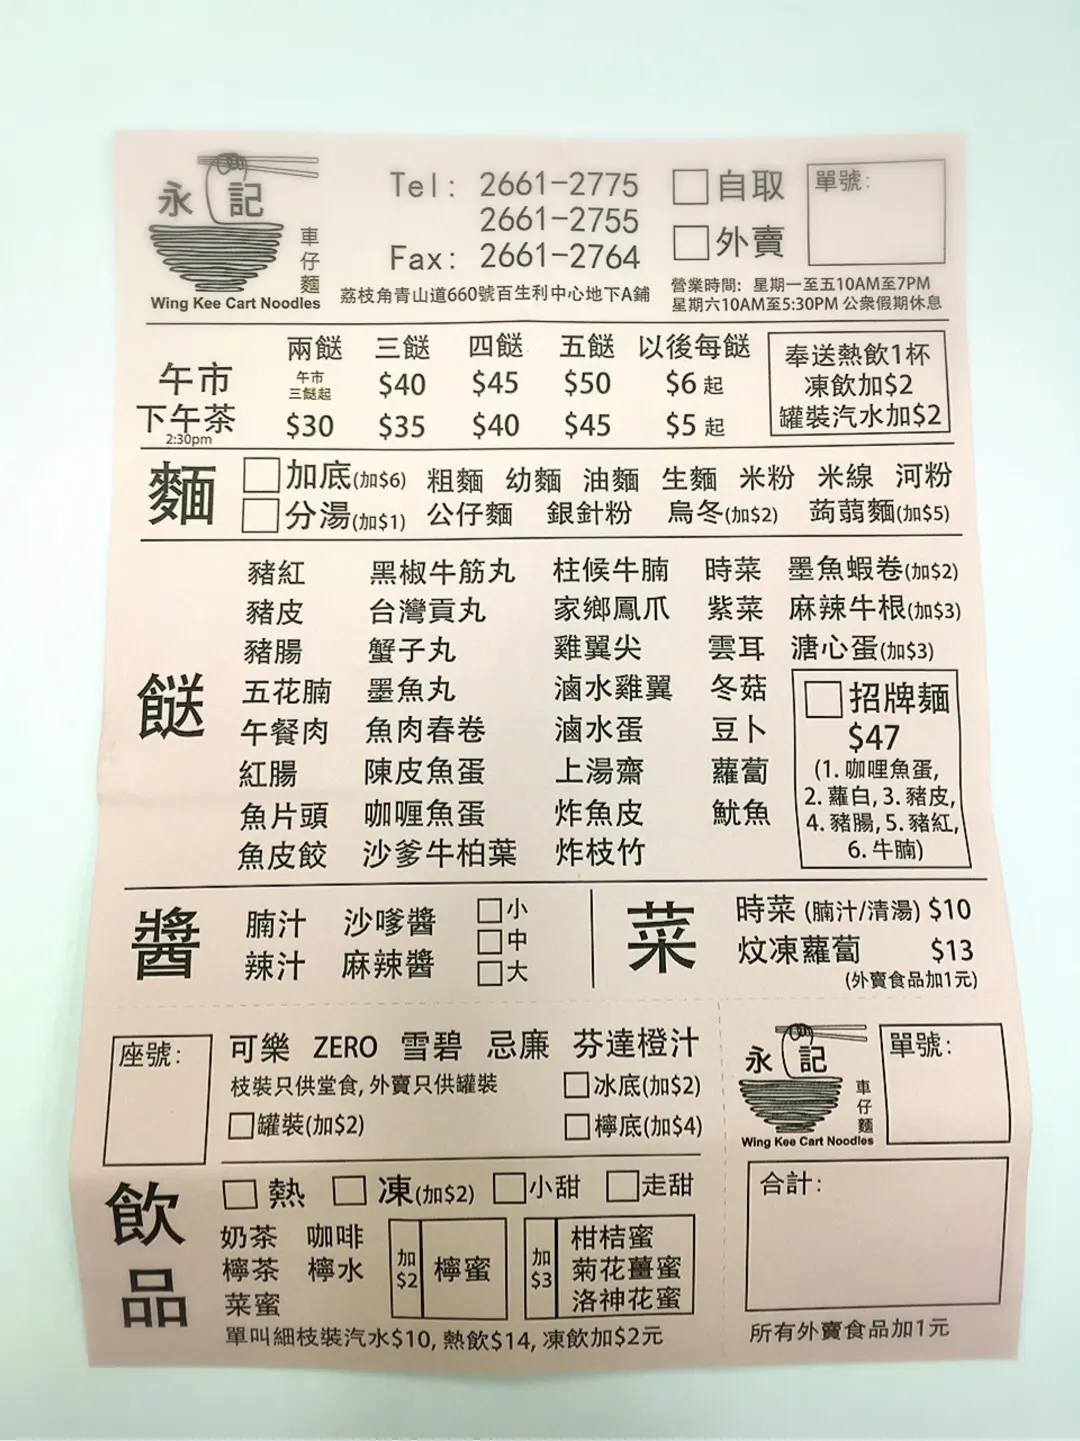 永記
車仔麵
Wing Kee Cart Noodles
Tel: 2661-2775
2661-2755
Fax: 2661-2764
荔枝角青山道660號百生利中心地下A鋪
自取
外賣
單號:
營業時間: 星期一至五10AM至7PM
星期六10AM至5:30PM 公衆假期休息
兩餸 三餸 四餸 五餸 以後每餸
午市 午市三餸起 $40 $45 $50 $6 起
下午茶 2:30pm $30 $35 $40 $45 $5 起
奉送熱飲1杯
凍飲加$2
罐裝汽水加$2
麵
加底(加$6) 粗麵 幼麵 油麵 生麵 米粉 米線 河粉
分湯(加$1) 公仔麵 銀針粉 烏冬(加$2) 蒟蒻麵(加$5)
餸
豬紅 黑椒牛筋丸 柱候牛腩 時菜 墨魚蝦卷(加$2)
豬皮 台灣貢丸 家鄉鳳爪 紫菜 麻辣牛根(加$3)
豬腸 蟹子丸 雞翼尖 雲耳 溏心蛋(加$3)
五花腩 墨魚丸 滷水雞翼 冬菇
午餐肉 魚肉春卷 滷水蛋 豆卜
紅腸 陳皮魚蛋 上湯齋 蘿蔔
魚片頭 咖喱魚蛋 炸魚皮 魷魚
魚皮餃 沙爹牛柏葉 炸枝竹
招牌麵
$47
(1. 咖哩魚蛋,
2. 蘿白, 3. 豬皮,
4. 豬腸, 5. 豬紅,
6. 牛腩)
醬
腩汁 沙嗲醬
辣汁 麻辣醬
小
中
大
菜
時菜 (腩汁/清湯) $10
炆凍蘿蔔 $13
(外賣食品加1元)
座號:
可樂 ZERO 雪碧 忌廉 芬達橙汁
枝裝只供堂食, 外賣只供罐裝
冰底(加$2)
罐裝(加$2)
檸底(加$4)
飲品
熱 凍(加$2) 小甜 走甜
奶茶 咖啡
檸茶 檸水
菜蜜
加$2 檸蜜
加$3 柑桔蜜
菊花薑蜜
洛神花蜜
單叫細枝裝汽水$10, 熱飲$14, 凍飲加$2元
永記
車仔麵
Wing Kee Cart Noodles
單號:
合計:
所有外賣食品加1元